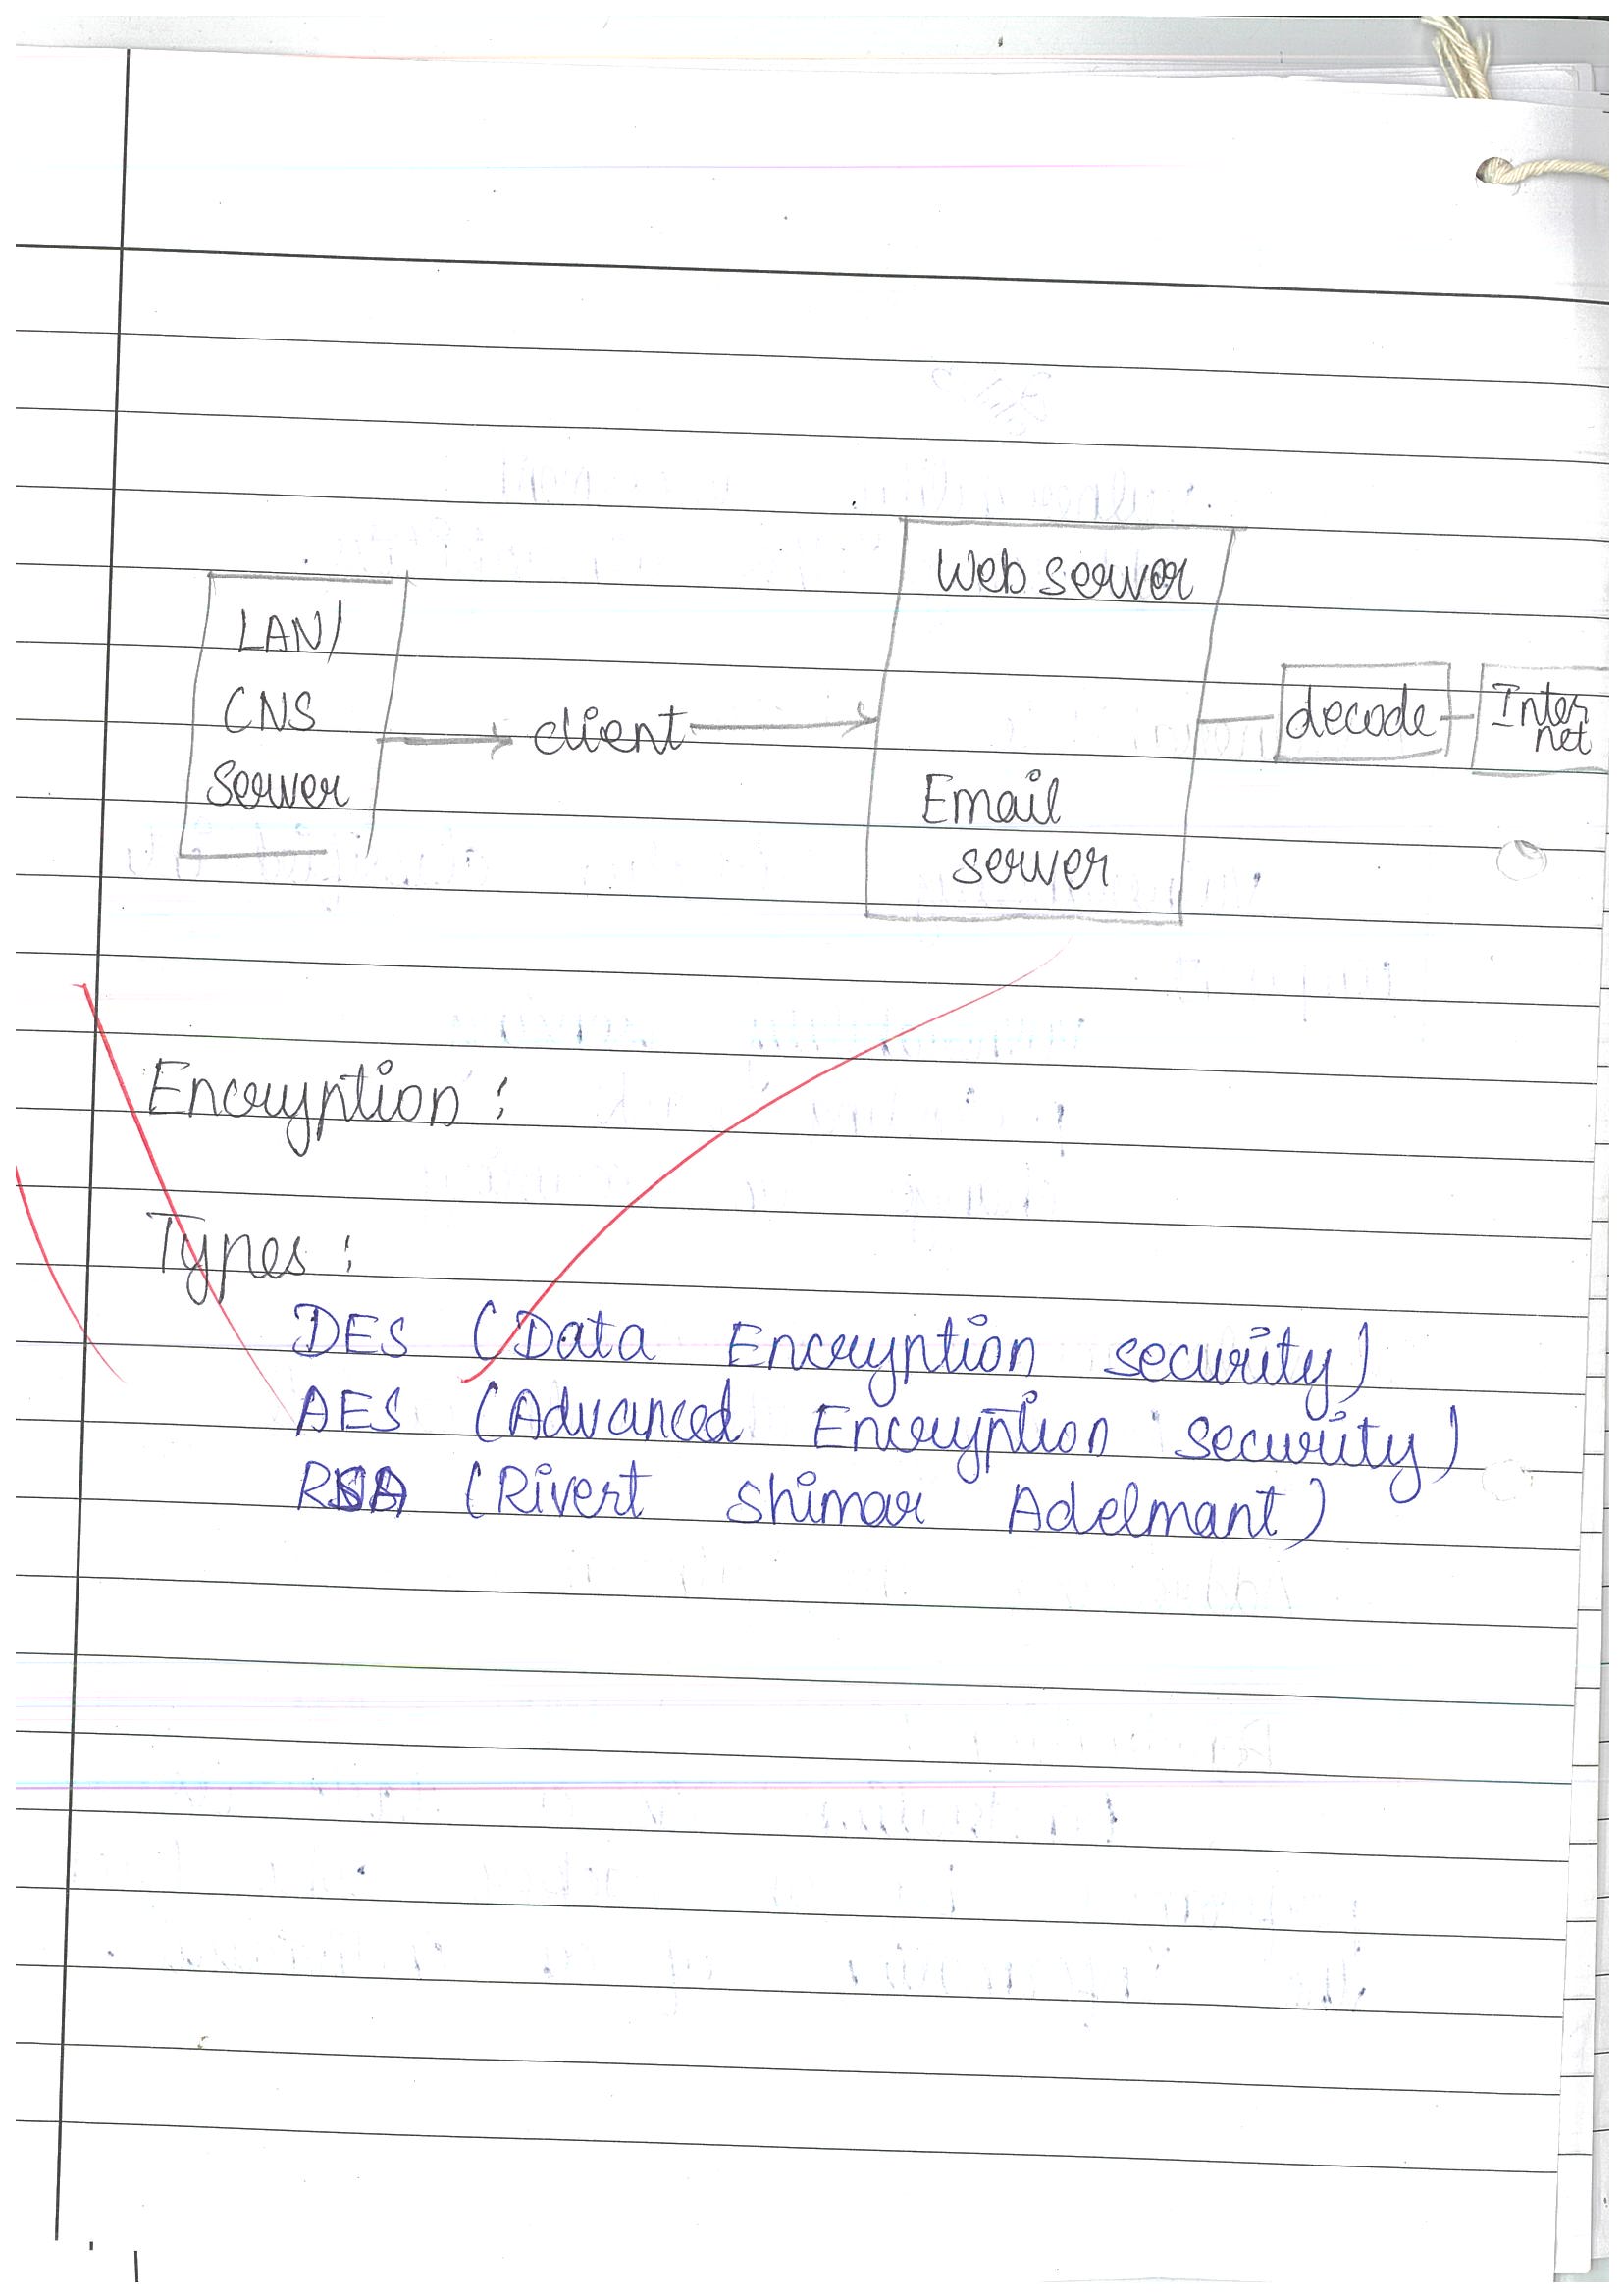 LAN/
CNS
server
client
Web server
Email
server
decode
Inter
net
Encryption :
Types :
DES (Data Encryption security)
AES (Advanced Encryption security)
RSA (Rivert Shimar Adelmant)